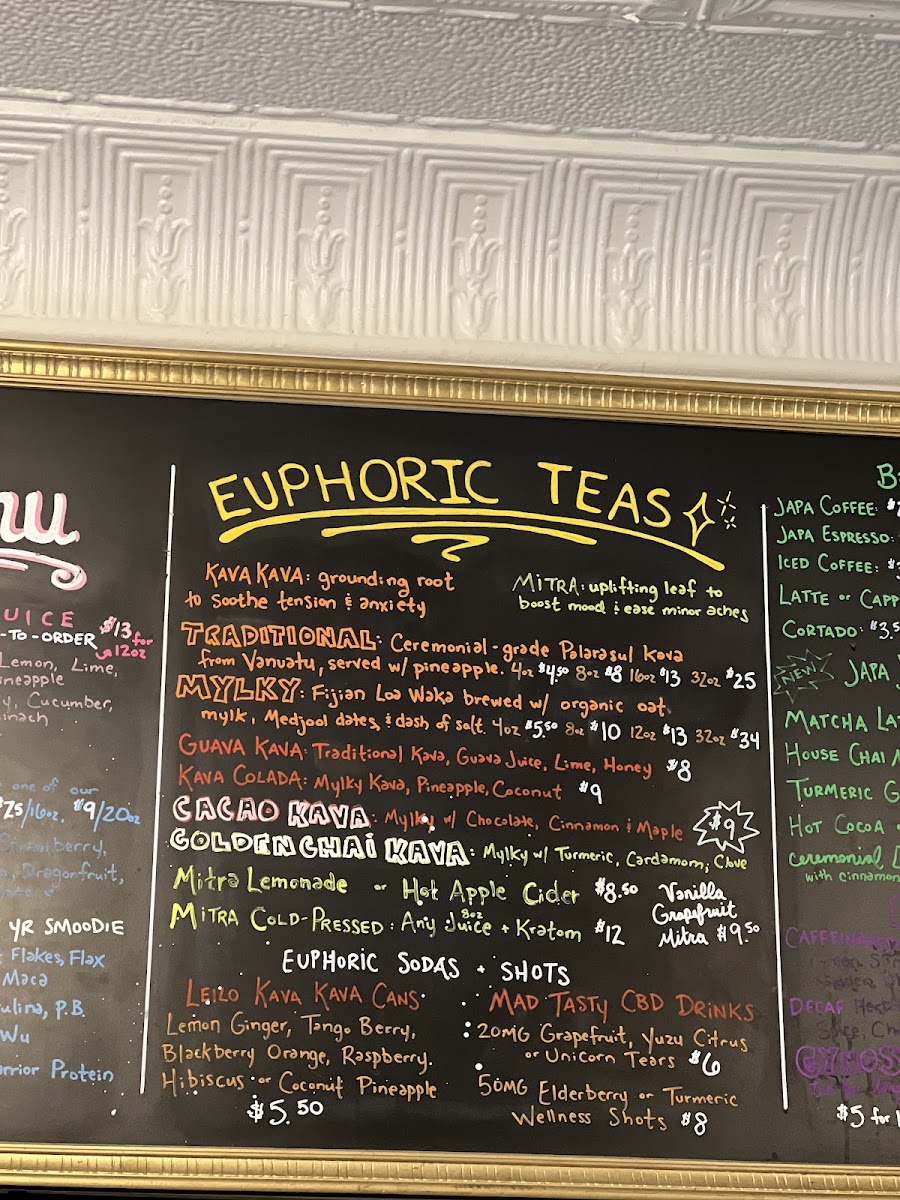 nu
UICE
-TO-ORDER $13 for 12oz
Lemon, Lime,
neapple
y, Cucumber,
inach
one of our
75/16oz. $9/20oz
Strawberry,
, Dragonfruit,
YR SMOODIE
Flakes, Flax
Maca
ulina, P.B.
Wu
arrior Protein
EUPHORIC TEAS
KAVA KAVA: grounding root
to soothe tension & anxiety
MITRA: uplifting leaf to
boost mood & ease minor aches
TRADITIONAL: Ceremonial-grade Polarasul Kava
from Vanuatu, served w/ pineapple. 4oz $4.50 8oz $8 16oz $13 32oz $25
MYLKY: Fijian Loa Waka brewed w/ organic oat
mylk, Medjool dates, & dash of salt. 4oz $5.50 8oz $10 12oz $13 32oz $34
GUAVA KAVA: Traditional Kava, Guava Juice, Lime, Honey $8
KAVA COLADA: Mylky Kava, Pineapple, Coconut $9
CACAO KAVA: Mylky w/ Chocolate, Cinnamon & Maple $9
GOLDEN CHAI KAVA: Mylky w/ Turmeric, Cardamom, Clove
Mitra Lemonade or Hot Apple Cider $8.50
MITRA COLD-PRESSED: Any 8oz Juice + Kratom $12
Vanilla
Grapefruit
Mitra $9.50
EUPHORIC SODAS + SHOTS
LEILO KAVA KAVA CANS
Lemon Ginger, Tango Berry,
Blackberry Orange, Raspberry
Hibiscus or Coconut Pineapple
$5.50
MAD TASTY CBD DRINKS
20MG Grapefruit, Yuzu Citrus
or Unicorn Tears $6
50MG Elderberry or Turmeric
Wellness Shots $8
B
JAPA COFFEE: $
JAPA ESPRESSO:
ICED COFFEE: $
LATTE or CAPP
CORTADO: $3.5
NEW JAPA
MATCHA LA
HOUSE CHAI
TURMERIC G
HOT COCOA
ceremonial
with cinnamon
CAFFEINA
DECAF Herb
$5 for 1